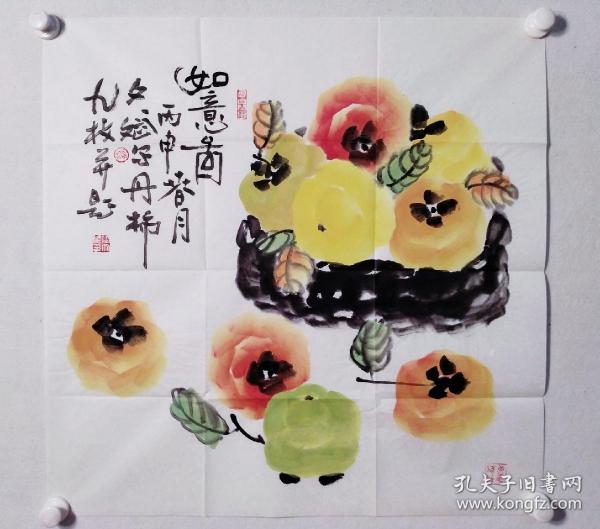 如意图
丙申春月
丹柿
九枚并题
孔夫子旧书网
www.kongfz.com